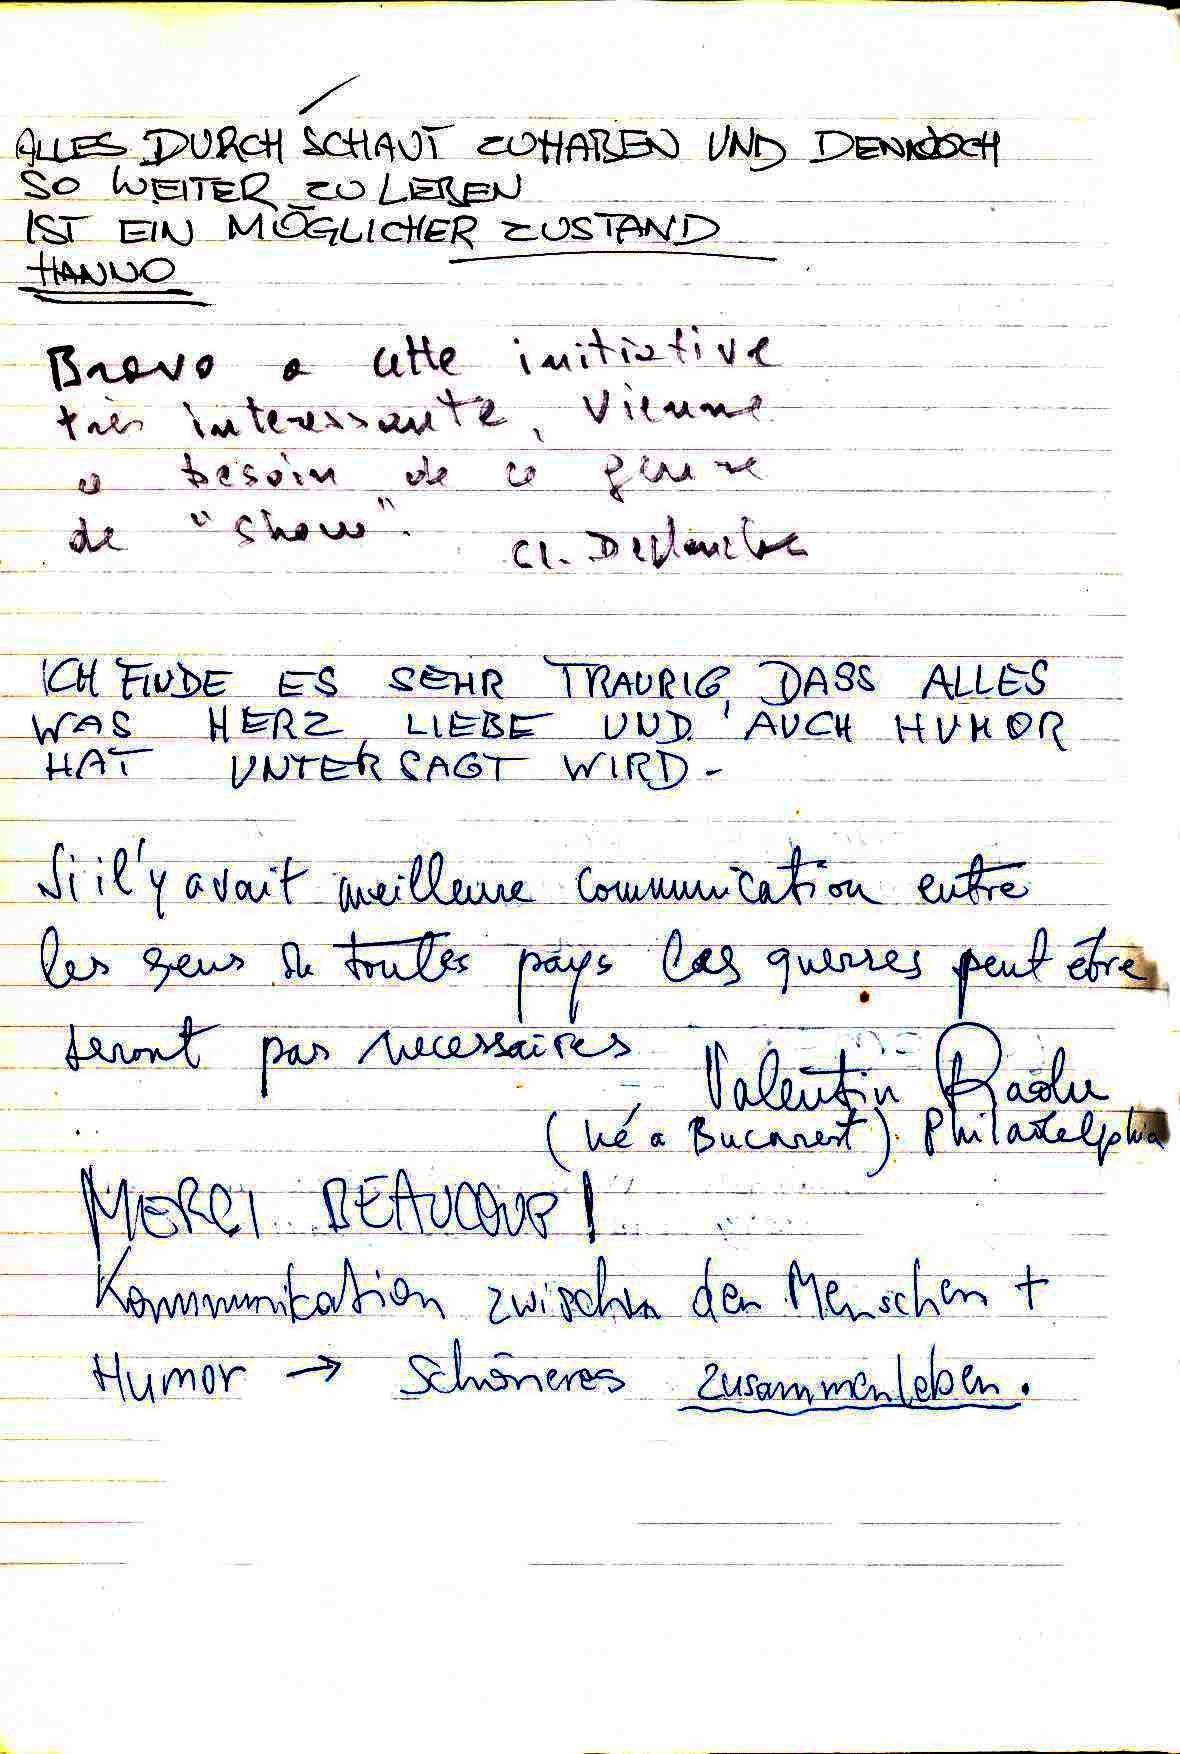 ALLES DURCH SCHAUT ZUHABEN UND DENNOCH
SO WEITER ZU LEBEN
IST EIN MÖGLICHER ZUSTAND
HANNO
Bravo a cette initiative
très interessante, Vienne
a besoin de ce genre
de "show". Cl.
ICH FINDE ES SEHR TRAURIG, DASS ALLES
WAS HERZ, LIEBE UND AUCH HUMOR
HAT UNTERSAGT WIRD -
Si il'y avait meilleure communication entre
les gens de toutes pays les guerres peut être
seront pas necessaires
Valentin Radu
(né a Bucarest). Philadelphia
MERCI BEAUCOUP!
Kommunikation zwischen den Menschen +
Humor → Schöneres zusammenleben.